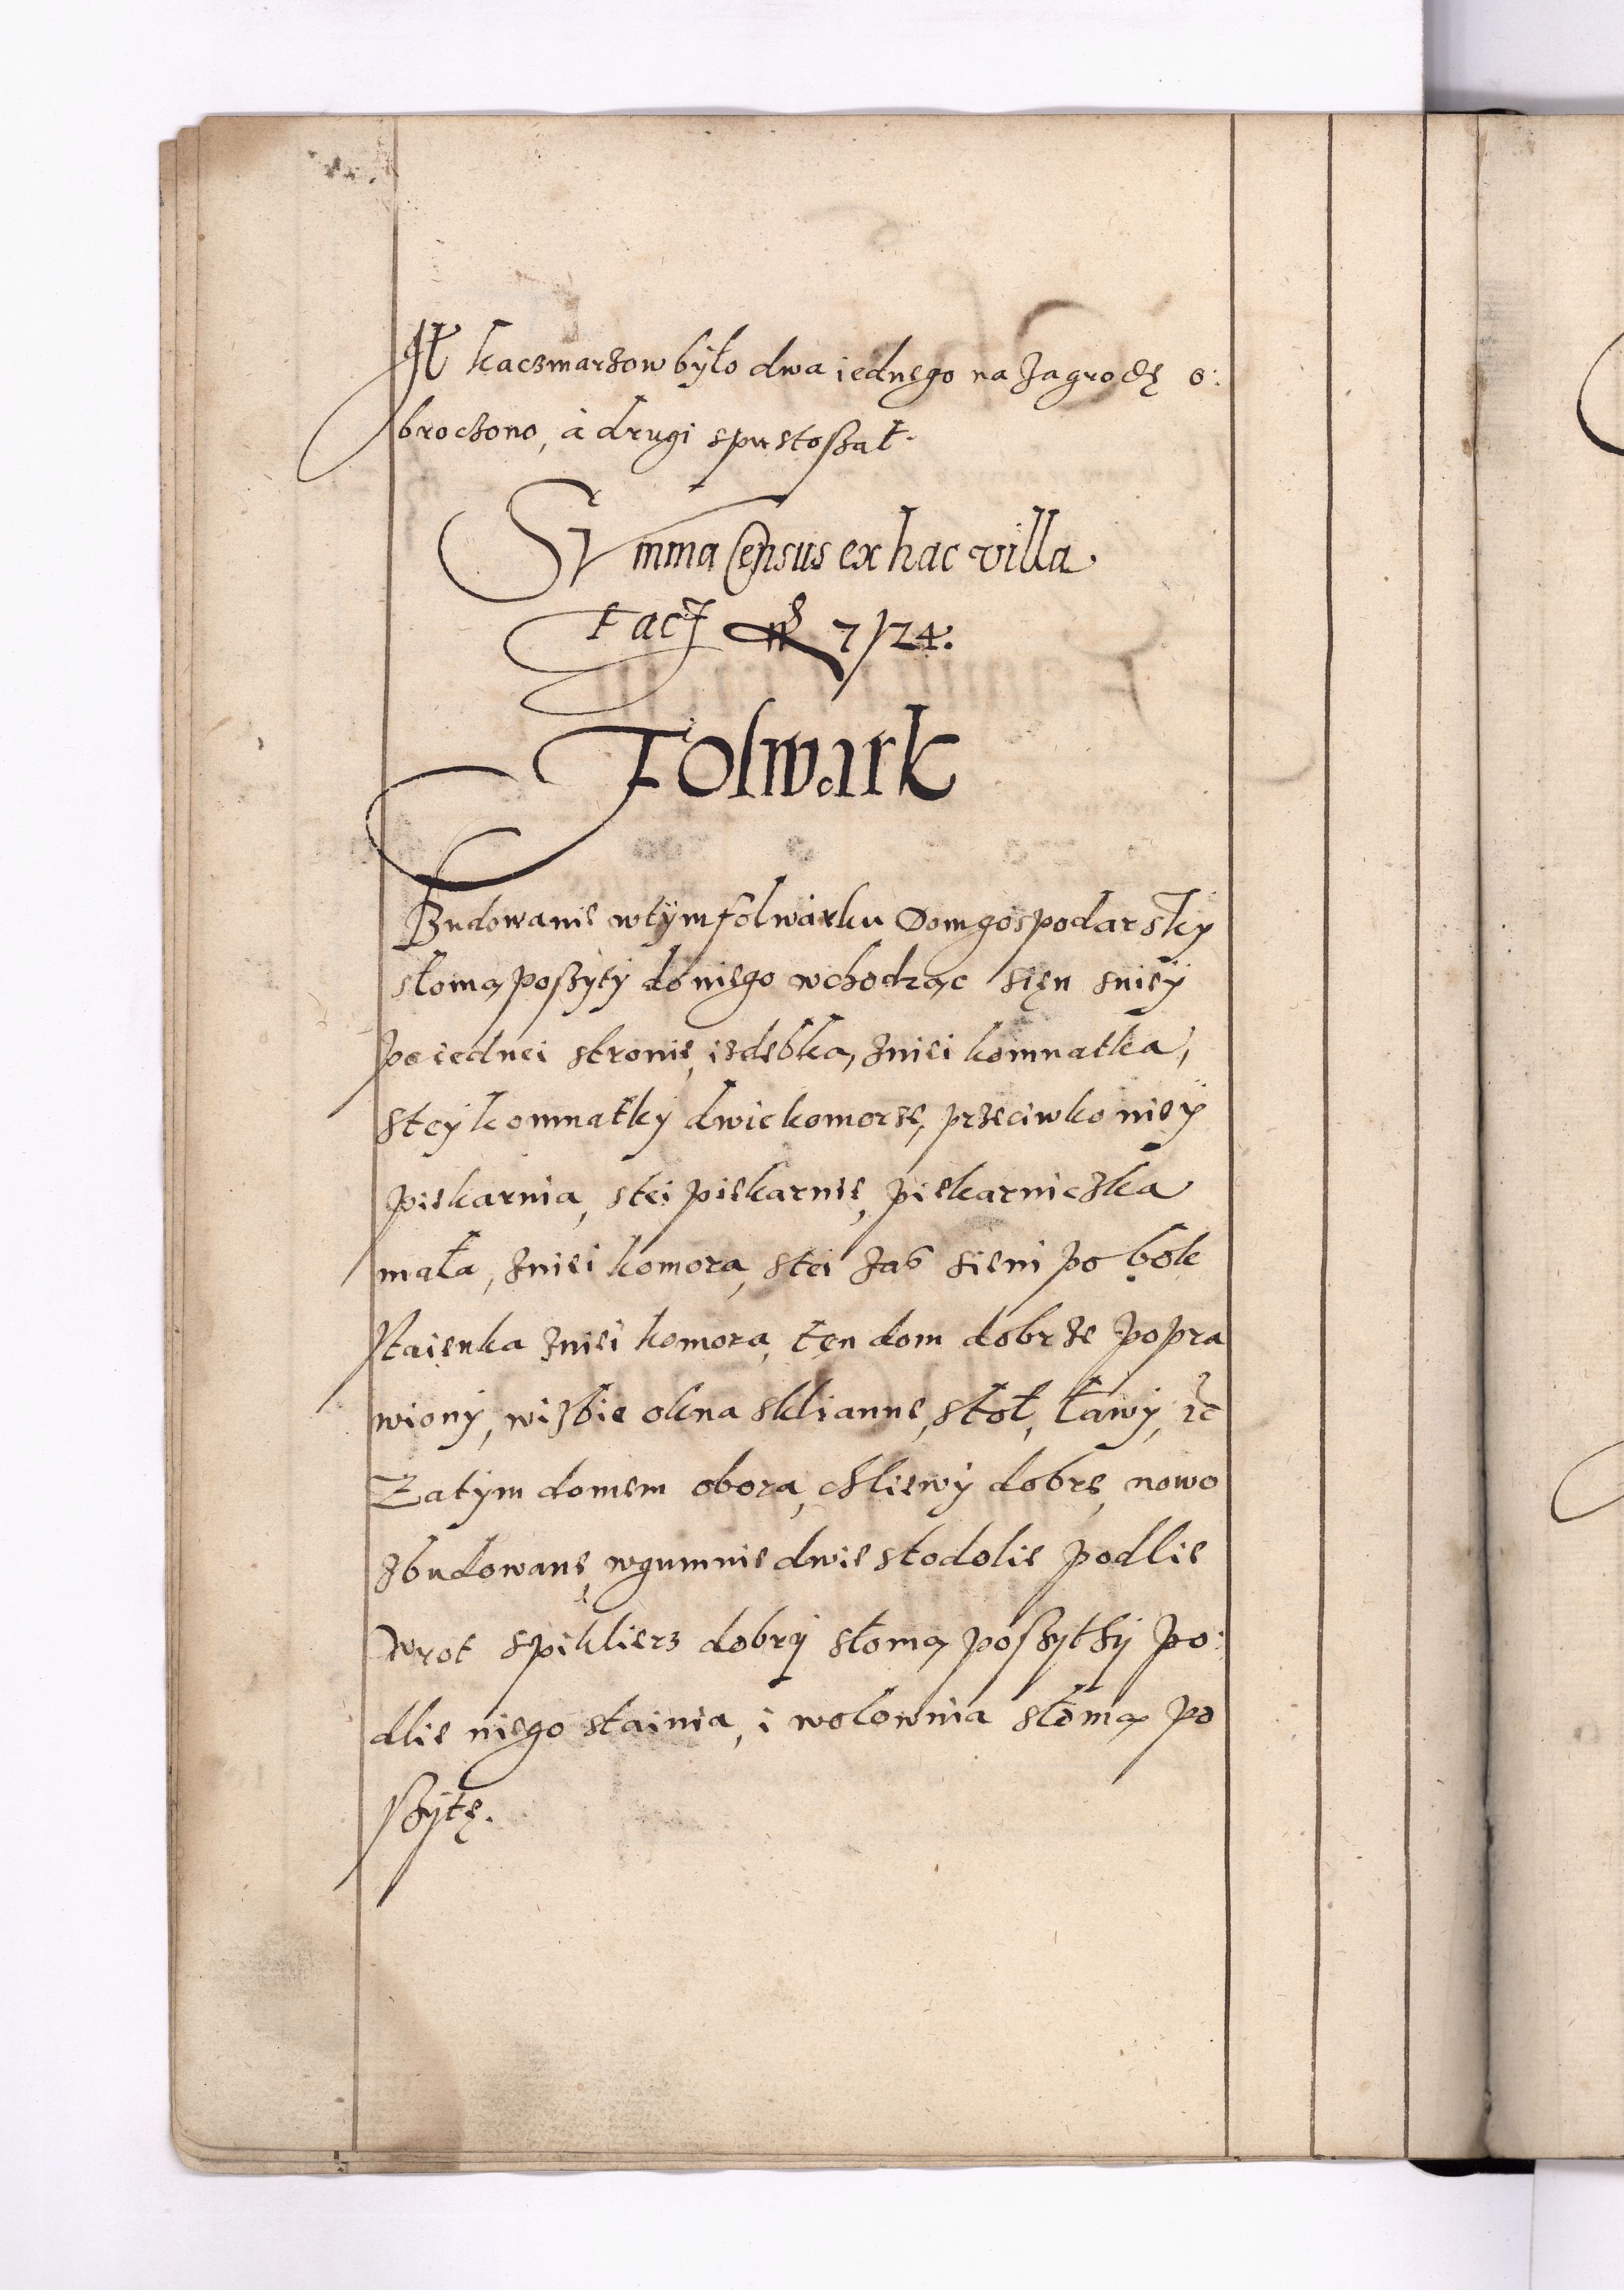 It kaczmarzow było dwa iednego na zagrodę o:
broczono, à drugi spustoszał.
Summa Census ex hac villa
facit 7/24.
Folwark
Budowanie wtÿm folwàrku Dom gospodarsky
słomą poszyty do niego wchodząc sięn snieÿ
po iednei stronie, izdebka, zniei komnatka,
steÿ komnatky dwie komorze, przeciwko nieÿ
piekarnia, stei piekarnie, piekarniczka
mała, zniei komora, stei zaś sieni po bok
staienka zniei komora, ten dom dobrze popra
wiony, wizbie okna sklianne, stoł, ławÿ, etc
Zatÿm domem obora, chliewÿ dobre, nowo
zbudowane, wgumnie dwie stodolie podlie
wrot spiklierz dobrÿ słomą poszythÿ po:
dlie niego stainia, i wołownia słomą po
szÿtę.